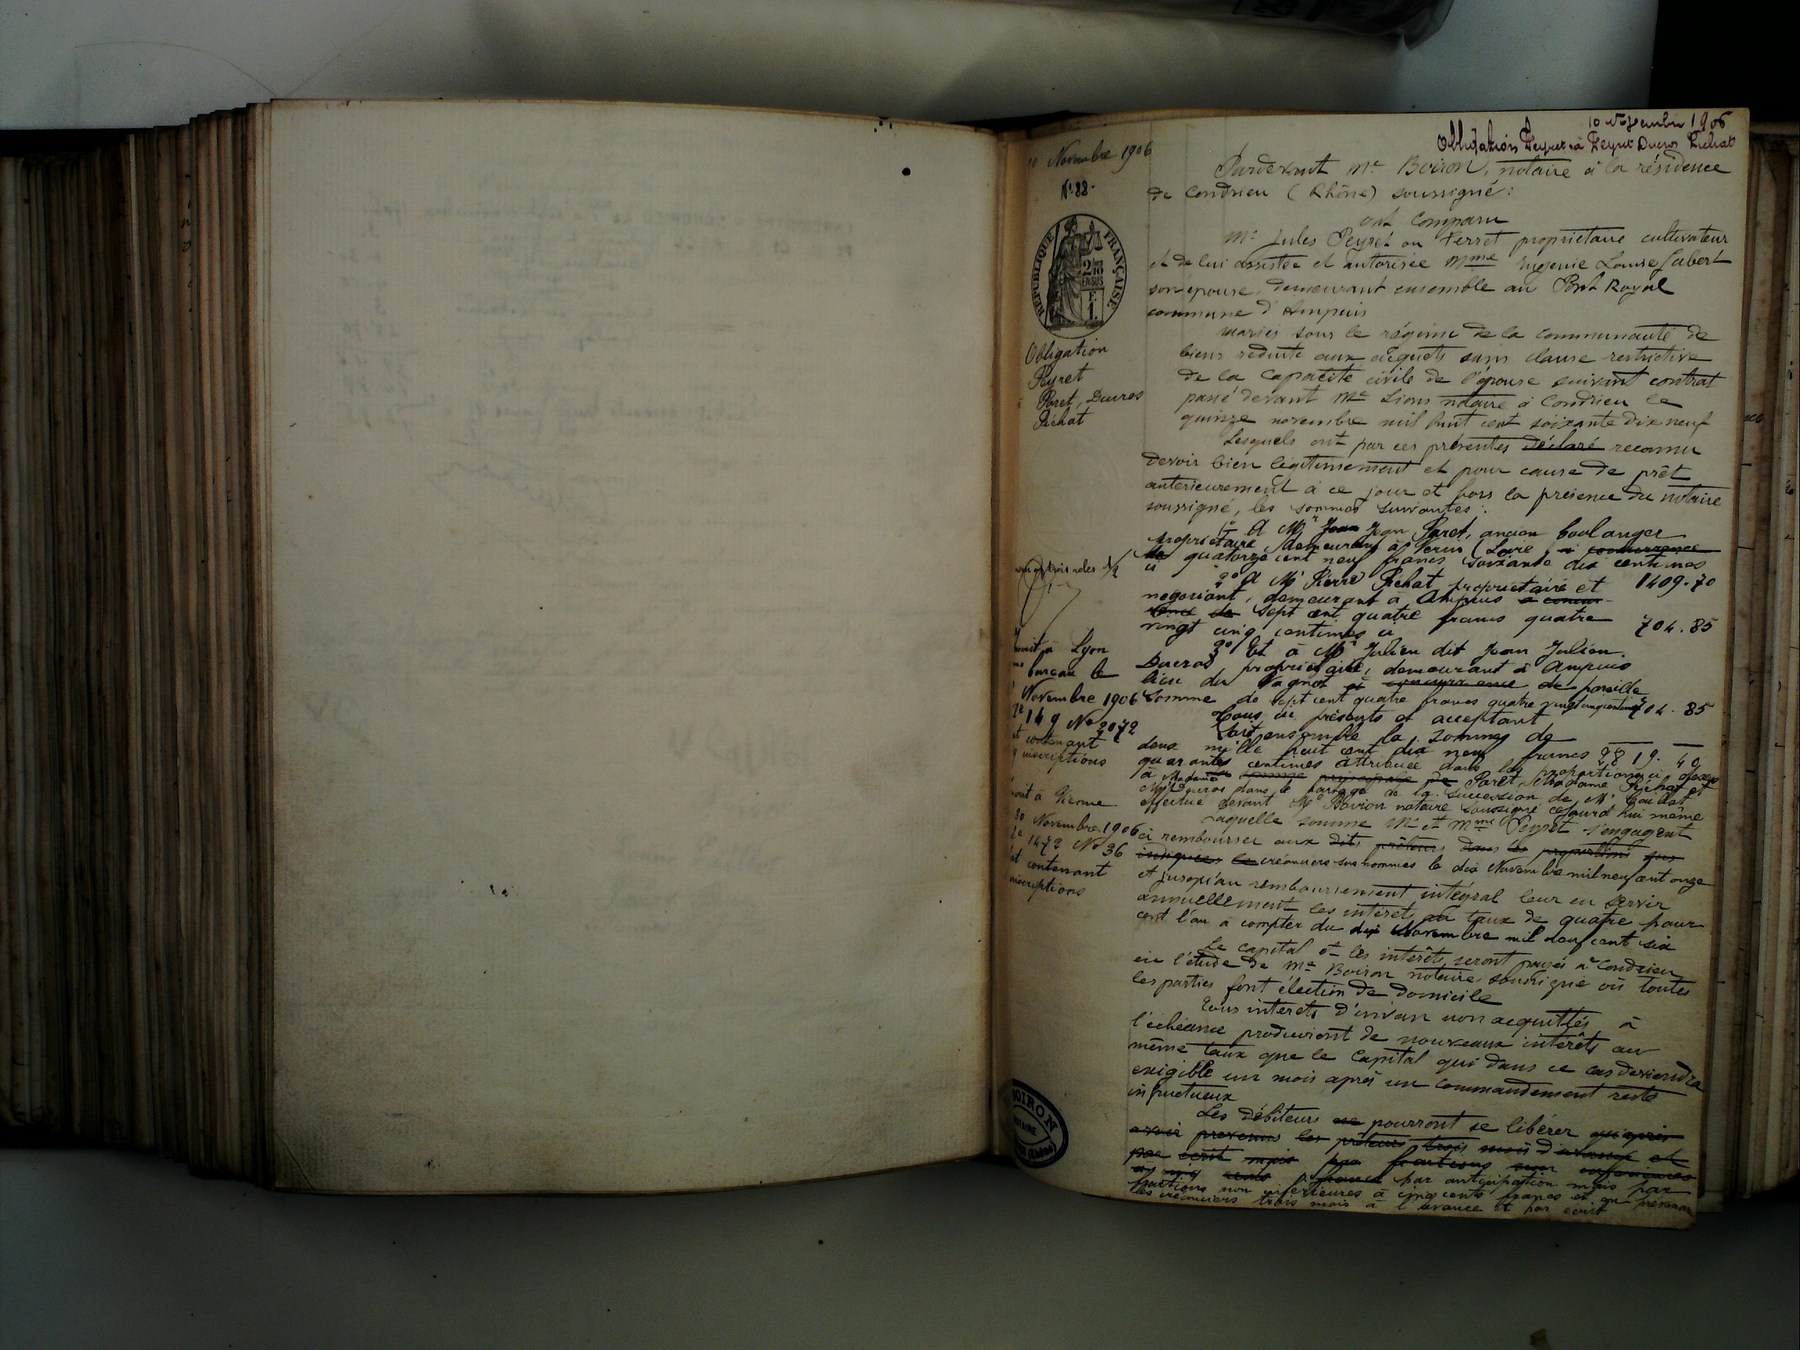 10 Novembre 1906
Obligation Peyret à Peyret Ducros Pichat
10 Novembre 1906
N° 88.
RÉPUBLIQUE FRANÇAISE
Obligation
Peyret
Paret, Ducros
Pichat
trois roles 1/2
à Lyon
bureau le
Novembre 1906
149 N° 2072
contenant
inscriptions
à Vienne
10 Novembre 1906
1472 N° 36
contenant
inscriptions
BOIRON
NOTAIRE
(Rhône)
Pardevant Me Boiron, notaire à la résidence
de Condrieu (Rhône) soussigné:
ont comparu
Mr Jules Peyret ou Perret propriétaire cultivateur
et de lui assistée et autorisée Mme Eugenie Louise Jabert
son épouse, demeurant ensemble au Port Royal
commune d'Ampuis
mariés sous le régime de la communauté de
biens réduite aux acquêts sans clause restrictive
de la capacité civile de l'épouse suivant contrat
passé devant Me Lions notaire à Condrieu le
quinze novembre mil huit cent soixante dix neuf
Lesquels ont par ces présentes déclaré reconnu
devoir bien légitimement et pour cause de prêt
antérieurement à ce jour et hors la présence du notaire
soussigné, les sommes suivantes:
1° A Mr Jean Jean Paret, ancien boulanger
propriétaire demeurant à Verin (Loire, à concurrence
de quatorze cent neuf francs soixante dix centimes
ci 1409.70
2° A Mr Pierre Pichat propriétaire et
négociant, demeurant à Ampuis à concur-
rence de sept cent quatre francs quatre
vingt cinq centimes ci 704.85
3° Et à Mr Julien dit Jean Julien
Ducros, propriétaire, demeurant à Ampuis
lieu du Vagnot et concurrence de pareille
somme de sept cent quatre francs quatre vingt cinq centimes 704.85
Tous ici présents et acceptant
Soit ensemble la somme de
deux mille huit cent dix neuf francs 2819.40
quarante centimes attribuée dans les proportions ci dessus
à Madame somme principale de Paret, Madame Pichat et
Mr Ducros dans le partage de la succession de Mr Caillat
effectué devant Me Boiron notaire soussigné cejourd'hui même
Laquelle somme Mr et Mme Peyret s'engagent
à rembourser aux dits prêteurs dans les proportions que
indiquées le créanciers susnommés le dix Novembre mil neuf cent onze
et jusqu'au remboursement intégral leur en servir
annuellement les intérêts au taux de quatre pour
cent l'an à compter du dix Novembre mil neuf cent six
Le capital et les intérêts seront payés à Condrieu
en l'étude de Me Boiron notaire soussigné où toutes
les parties font élection de domicile
Tous intérêts d'un an non acquittés à
l'échéance produiront de nouveaux intérêts au
même taux que le capital qui dans ce cas deviendra
exigible un mois après un commandement resté
infructueux
Les débiteurs ne pourront se libérer qu'après
avoir prevenu les prêteurs trois mois d'avance et
par écrit mais par fractions non inférieures
à cinq cents francs par anticipation mais par
fractions non inférieures à cinq cents francs et en prévenant
les créanciers trois mois à l'avance et par écrit